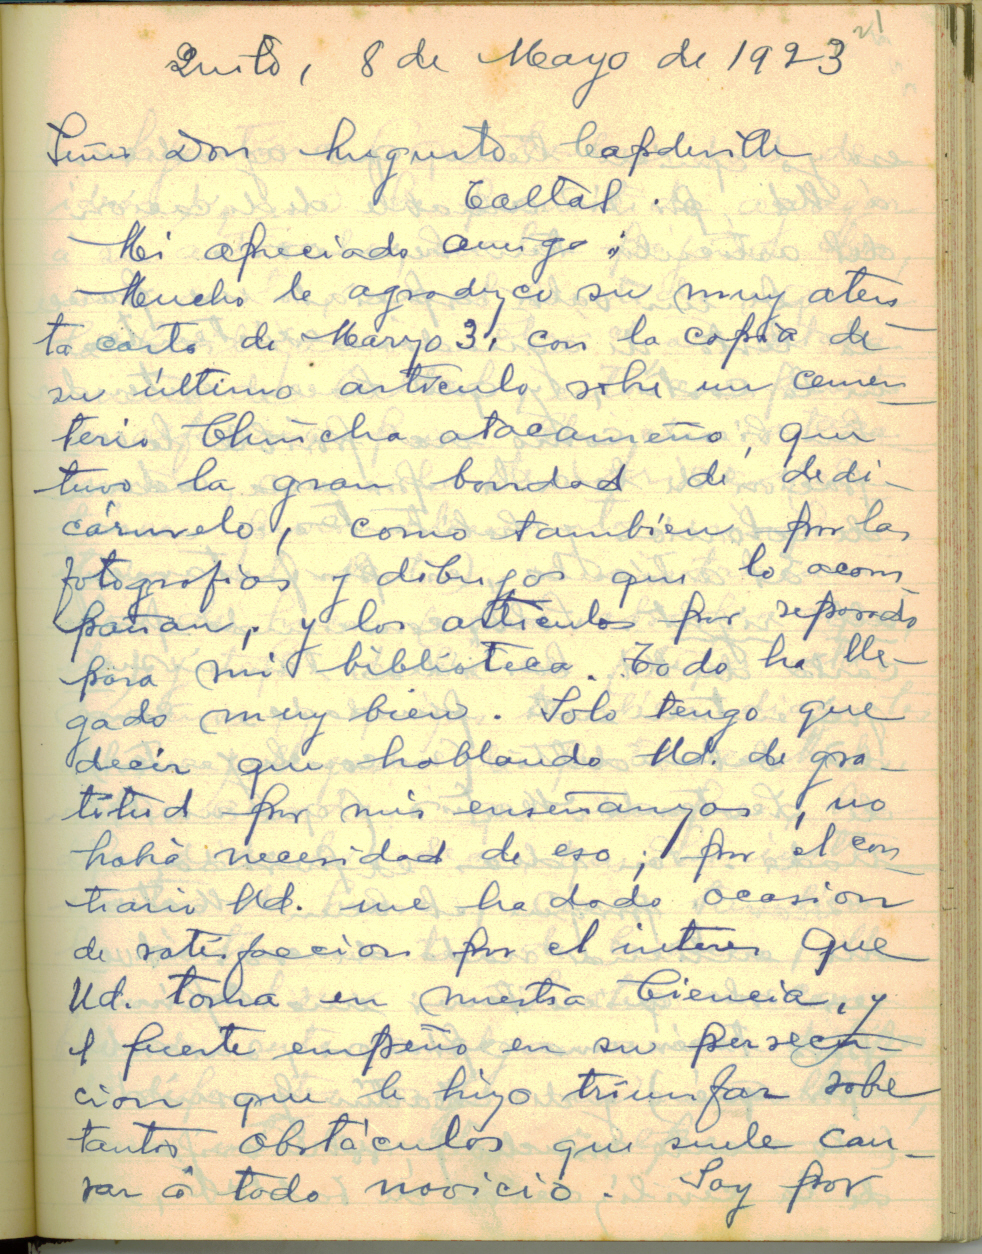 21
Quito, 8 de Mayo de 1923
Señor Don Augusto Capdeville
Taltal.
Mi apreciado amigo;
Mucho le agradezco su muy aten
ta carta de Marzo 31 con la copia de
su último artículo sobre un cemen
terio Chincha atacameño, que
tuvo la gran bondad de, dedi-
cármelo, como tambien por las
fotografias y dibujos que lo acom
pañan, y los artículos por separado
para mi biblioteca. Todo ha lle-
gado muy bien. Solo tengo que
decir que hablando Ud. de gra-
titud por mis enseñanzas, no
habia necesidad de eso; por el con
trario Ud. me ha dado ocasion
de satisfaccion por el interes que
Ud. toma en nuestra Ciencia, y
el fuerte empeño en su persecu-
cion que le hizo triunfar sobre
tantos obstáculos que suele cau-
sar á todo novicio. Soy por